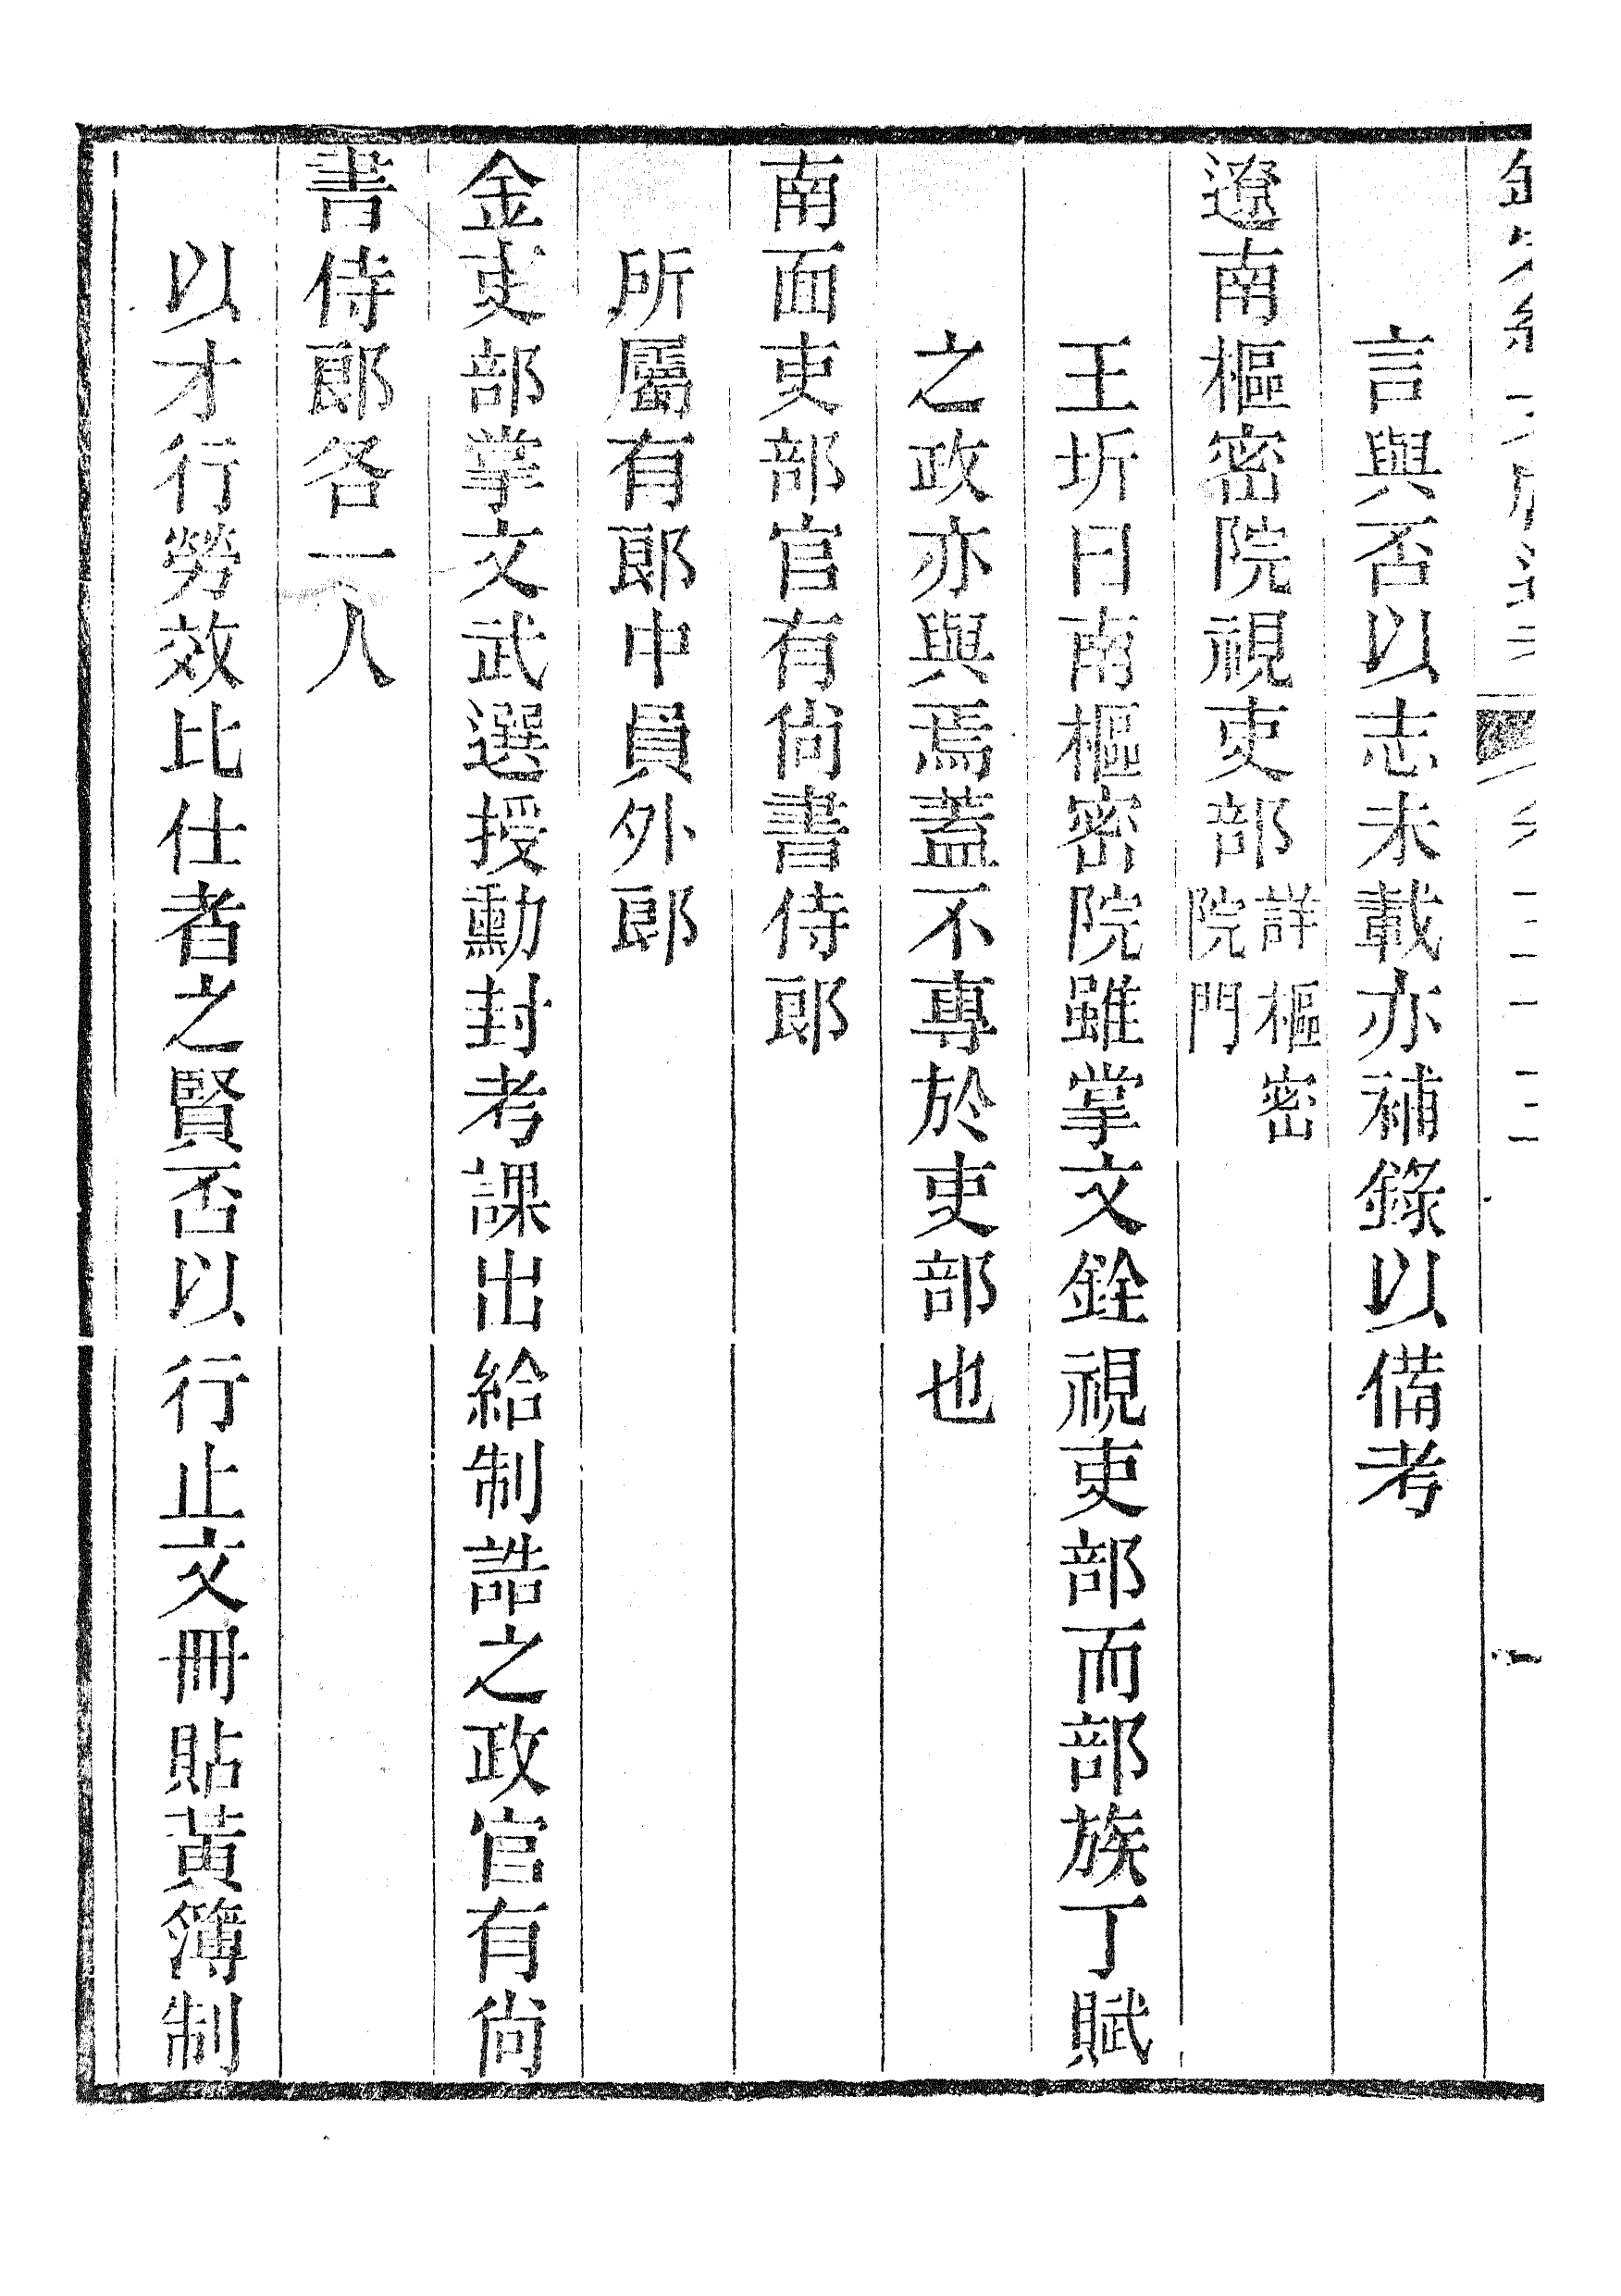 言與否以志未載亦補錄以備考
遼南樞密院視吏部詳樞密院門
王圻曰南樞密院雖掌文銓視吏部而部族丁賦
之政亦與焉蓋不專於吏部也
南面吏部官有尙書侍郞
所屬有郞中員外郞
金吏部掌文武選授勳封考課出給制誥之政官有尙
書侍郞各一人
以才行勞效比仕者之賢否以行止文冊貼黃簿制